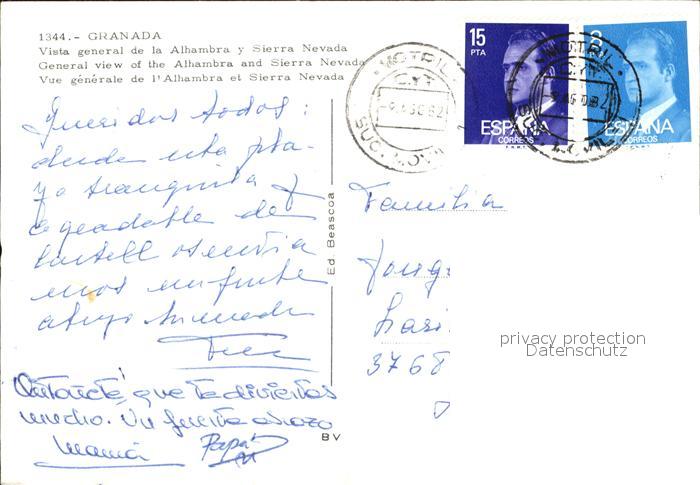 1344.- GRANADA
Vista general de la Alhambra y Sierra Nevada
General view of the Alhambra and Sierra Nevada
Vue générale de l'Alhambra et Sierra Nevada
15
PTA
ESPAÑA
CORREOS
8
ESPAÑA
CORREOS
MOTRIL
SUC. MOVIL
MOTRIL
Queridos todos:
desde esta pla-
ya tranquila y
agradable de
Castell os envia
mos un fuerte
abrazo
que te diviertas
mucho. Un fuerte abrazo
Mamá Papá
Ed. Beascoa
BV
Familia
3768
privacy protection
Datenschutz